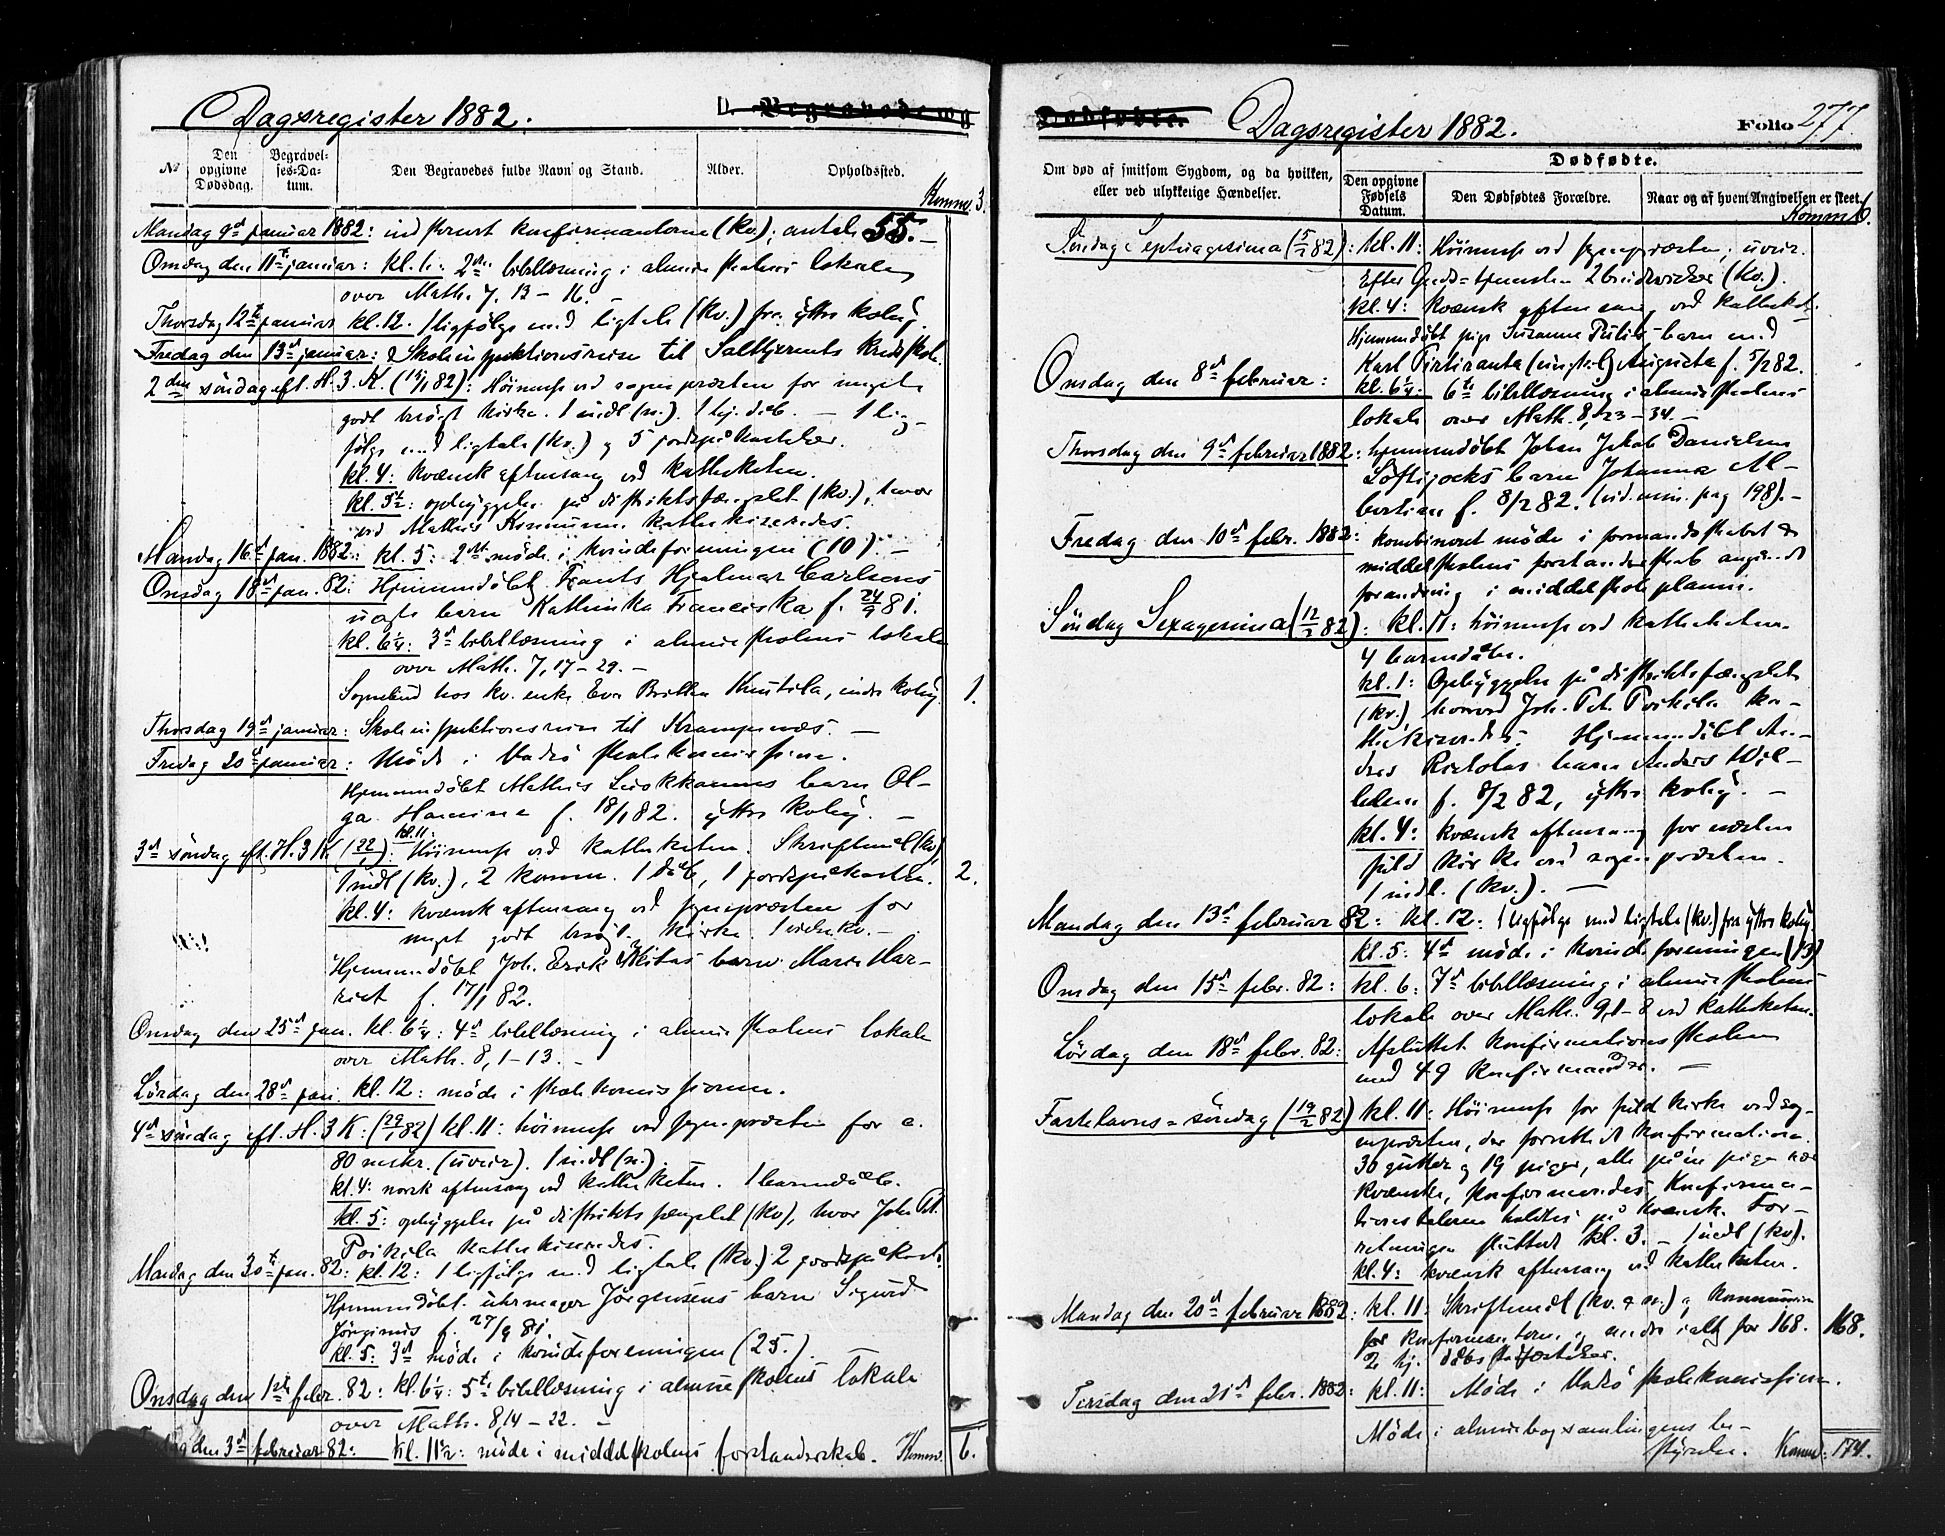 Dagsregister 1882.
D. Begravede og
№
Den opgivne Dødsdag.
Begravel-ses-Da-tum.
Den Begravedes fulde Navn og Stand.
Alder.
Opholdssted.
Komm. 3.
Mandag 9de januar 1882: indskrevet konfirmanterne (kv.); antal 55. –
Onsdag den 11te januar: kl. 6: 2den bibellæsning i almueskolens lokale
over Math. 7, 13 – 16. –
Thorsdag 12te januar kl. 12. 1 ligfølge med ligtale (kv.) fra ýttre kolný.
Fredag den 13de januar: Skoleinspektionsreise til Saltkjernets kredsskole.
2den søndag eft. H. 3 K. (15/1 82): Høimesse ved sognepræsten for meget
godt besøgt kirke. 1 indl (n.). 1 hj. dåb. – 1 lig-
følge med ligtale (kv.) og 5 jordspåkastelser.
kl. 4: kvænsk aftensang ved katheketen.
kl. 5½: opbýggelse på distriktsfængslet (kv.), hvor
ved Mathis Kinnunen katekiseredes.
Mandag 16de jan. 1882: kl. 5: 2det møde i kvindeforeningen (10). –
Onsdag 18de jan. 82: Hjemmedøbt Frants Hjalmar Carlsens
uægte barn Kathinka Franciska f. 24/9 81.
kl. 6¼: 3de bibellæsning i almueskolens lokale
over Math. 7, 17 – 29. –
Sognebud hos kv. enke Eva Britha Knutila, indre kolný. 1.
Thorsdag 19de januar: Skoleinspektionsreise til Krampenæs. –
Fredag 20de januar: Møde i Vadsø skolekommission.
Hjemmedøbt Mathis Leskkannes barn Ol-
ga Hamine f. 18/1 82. ýttre kolný. –
3de søndag eft. H. 3 K. (22/1): kl. 11: Høimesse ved katheketen. Skriftemål (kv.)
1 indl (kv.), 2 komm. 1 dåb, 1 jordspåkastelse. 2.
kl. 4: kvænsk aftensang ved sognepræsten for
meget godt besøgt kirke. 1 indl kv. –
Hjemmedøbt Joh. Erik Niskas barn Marie Har-
riet f. 17/1 82.
Onsdag den 25de jan. kl. 6¼: 4de bibellæsning i almueskolens lokale
over Math. 8, 1 – 13. –
Lørdag den 28de jan. kl. 12: møde i skolekommissionen.
4de søndag eft. H. 3 K: (29/1 82) kl. 11: høimesse ved sognepræsten for c.
80 mskr. (uveir). 1 indl (n.)
kl. 4: norsk aftensang ved katheketen. 1 barnedåb.
kl. 5: opbýggelse på distriktsfængslet (kv), hvor Joh. Pet.
Poikila kathekiseredes.
Mandag den 30te jan. 82: kl. 12: 1 ligfølge med ligtale (kv.) 2 jordspåkast.
Hjemmedøbt uhrmager Jørgensens barn Sigurd
Jørginius f. 27/9 81.
kl. 5: 3de møde i kvindeforeningen (25.)
Onsdag den 1ste febr. 82: kl. 6¼: 5te bibellæsning i almueskolens lokale
over Math. 8, 14 – 22. –
den 3de februar 82: kl. 11½: møde i middelskolens forstanderskab. Komm. 6.
Dødfødte.
Dagsregister 1882.
Folio 277
Om død af smitsom Sygdom, og da hvilken, eller ved ulykkelige Hændelser.
Dødfødte.
Den opgivne Fødsels Datum.
Den Dødfødtes Forældre.
Naar og af hvem Angivelsen er skeet.
Komm. 6.
Søndag Septuagesima (5/2 82): kl. 11: Høimesse ved sognepræsten; uveir.
Efter Guds-tjenesten 2 brudevielser (kv.).
kl. 4: kvænsk aftensang ved katheket.
Hjemmedøbt pige Susanne barn med
Karl Pirtiranta (ungk.) Augusta f. 5/2 82.
Onsdag den 8de februar: kl. 6¼: 6te bibellæsning i almueskolens
lokale over Math. 8, 23 – 34. –
Thorsdag den 9de februar 1882: hjemmedøbt Johan Jakob Danielsen
barn Johanna Al-
bertine f. 8/2 82. (vid. min. pag 198). –
Fredag den 10de febr. 1882: kombineret møde i formandsskabet &
middelskolens forstanderskab angående
forandring i middelskoleplanen.
Søndag Sexagesima (12/2 82): kl. 11: høimesse ved katheketen.
4 barnedåbe.
kl. 1: Opbýggelse på distriktsfængslet
(kv.), hvorved Joh. Pet. Poikila ka-
thekiseredes. Hjemmedøbt An-
dres Rietolas barn Anders Wil-
helm f. 8/2 82, ýttre kolný. –
kl. 4: kvænsk aftensang for næsten
fuld kirke ved sognepræsten.
1 indl. (kv.). –
Mandag den 13de februar 82: kl. 12: 1 ligfølge med ligtale (kv.) fra ýttre kolný
kl. 5: 4de møde i kvindeforeningen (13)
Onsdag den 15de febr. 82: kl. 6: 7de bibellæsning i almueskolens
lokale over Math. 9, 1 – 8 ved katheketen.
Lørdag den 18de febr. 82: Afsluttet konfirmationsskolen
med 49 konfirmander. –
Fastelavns-søndag (19/2 82) kl. 11: Høimesse for fuld kirke ved sog-
nepræsten, der forrettet konfirmationen.
30 gutter og 19 piger, alle på én pige nær
kvænske, konfirmeredes. Konfirma-
tionstalerne holdtes på kvænsk. For-
retningen sluttede kl. 3. – 1 indl (kv).
kl. 4: kvænsk aftensang ved katheketen.
Mandag den 20de februar 1882: kl. 11: Skriftemål (kv. & n.) og kommunion
for konfirmanterne og andre ialt for 168. 168.
2 hj. dåbsstadfæstelser.
Tirsdag den 21de febr. 1882: kl. 11: Møde i Vadsø skolekommission.
Møde i almuebogsamlingens be-
stýrelse. Komm: 174.